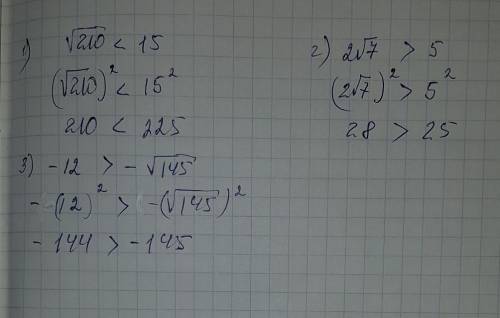 1) √210 < 15
(√210)² < 15²
210 < 225
2) 2√7 > 5
(2√7)² > 5²
28 > 25
3) -12 > -√145
-(12)² > -(√145)²
-144 > -145